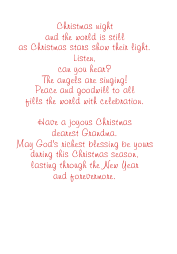 Christmas night
and the world is still
as Christmas stars show their light.
Listen,
can you hear?
The angels are singing!
Peace and goodwill to all
fills the world with celebration.
Have a joyous Christmas
dearest Grandma.
May God's richest blessing be yours
during this Christmas season,
lasting through the New Year
and forevermore.